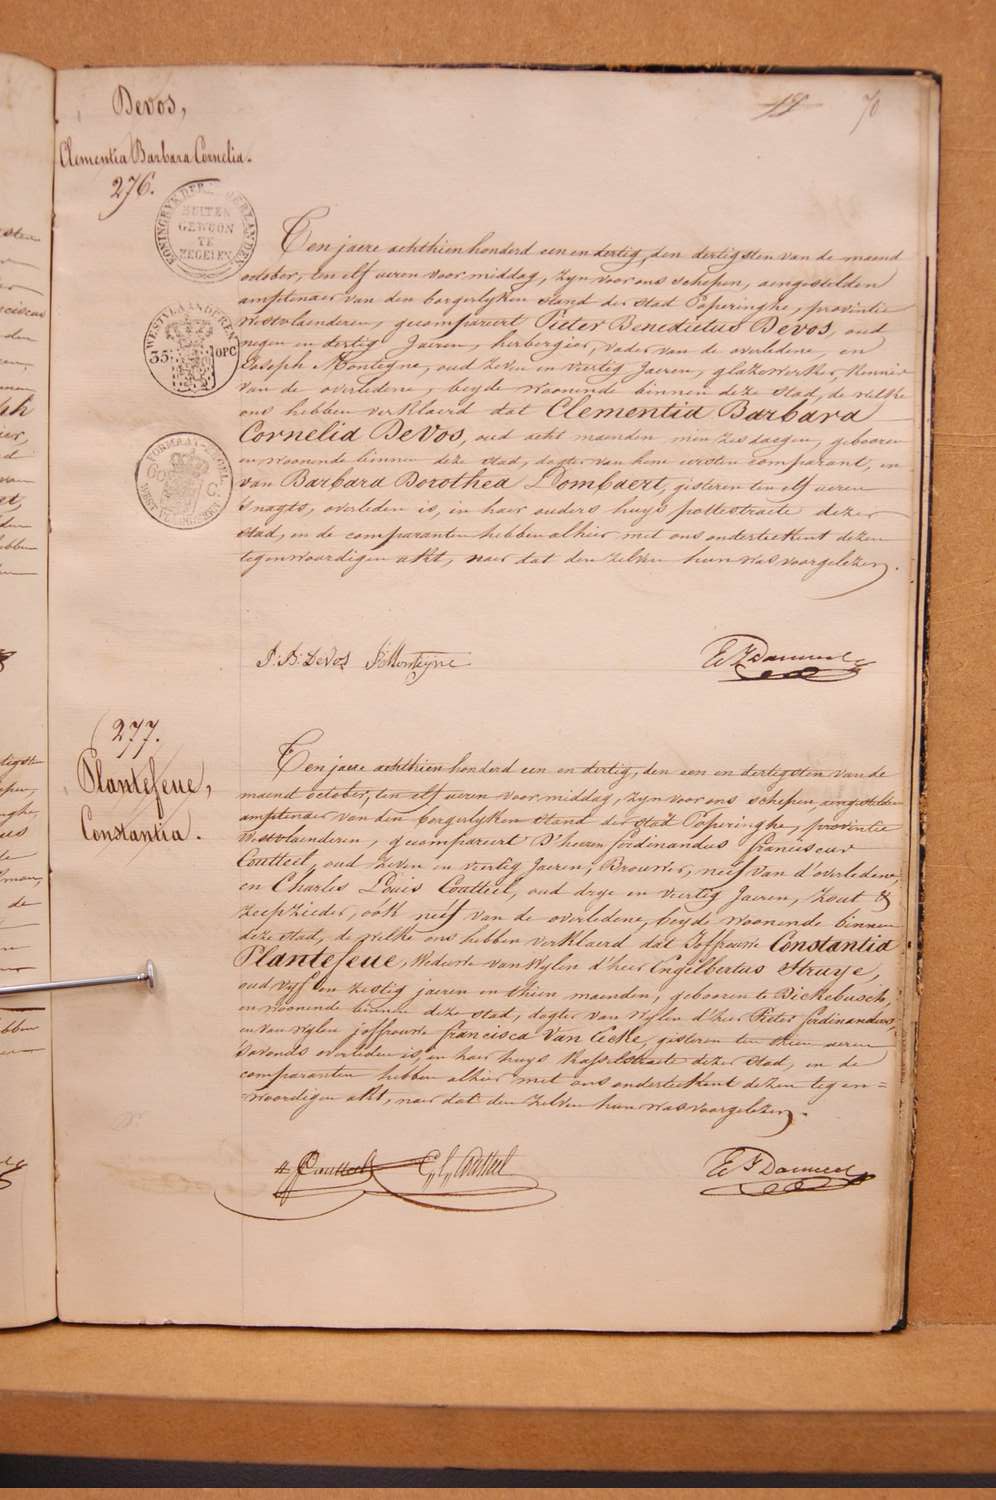 70
Devos,
Clementia Barbara Cornelia.
276.
KONINGRYK DER NEDERLANDEN
BUITEN
GEWOON
TE
ZEGELEN
WESTVLAANDEREN
35 OPC
Ten jaere achthien honderd een en dertig, den dertigsten van de maend
october, ten elf ueren voor middag, zyn voor ons schepen, aengestelden
amptenaer van den borgerlyken stand der stad Poperinghe, provintie
Westvlaenderen, gecompareert Pieter Benedictus Devos, oud
negen en dertig Jaeren, herbergier, vader van de overledene, en
Joseph Monteyne, oud zeven en viertig jaeren, glazewerker, Kennis
van de overledene, beyde woonende binnen deze stad, de welke
ons hebben verklaerd dat Clementia Barbara
Cornelia Devos, oud acht maenden min zes daegen, gebooren
en woonende binnen deze stad, dogter van hem eersten comparant, en
van Barbara Dorothea Dombaert, gisteren ten elf ueren
's nagts, overleden is, in haer ouders huys pottestraete dezer
stad, en de comparanten hebben alhier met ons onderteekent dezen
tegenwoordigen akt, naer dat den zelven hun was voorgelezen.
P: B: DeVos J: Monteyne
277.
Plantefeue,
Constantia.
Ten jaere achthien honderd een en dertig, den een en dertigsten van de
maend october, ten elf ueren voor middag, zyn voor ons schepen aengestelden
amptenaer van den borgerlyken stand der stad Poperinghe, provintie
Westvlaenderen, gecompareert D'heeren ferdinandus franciscus
Coutteel, oud zeven en viertig Jaeren, Brouwer, neef van d'overledene,
en Charles Louis Coutteel, oud drye en viertig Jaeren, zout &
zeepzieder, óók neéf van de overledene, beyde woonende binnen
deze stad, de welke ons hebben verklaerd dat Joffrouwe Constantia
Plantefeue, Weduwe van Wylen d'heer Engelbertus Struye,
oud vyf en zestig jaeren en thien maenden, gebooren te Dickebusch,
en woonende binnen deze stad, dogter van wylen d'heer Pieter ferdinandus,
en van wylen joffrouwe francisca Van Eecke, gisteren ten thien ueren
's avonds overleden is, en haer huys Kasselstraete dezer stad, en de
comparanten hebben alhier met ons onderteekent dezen tegen=
woordigen akt, naer dat den zelven hun was voorgelezen.